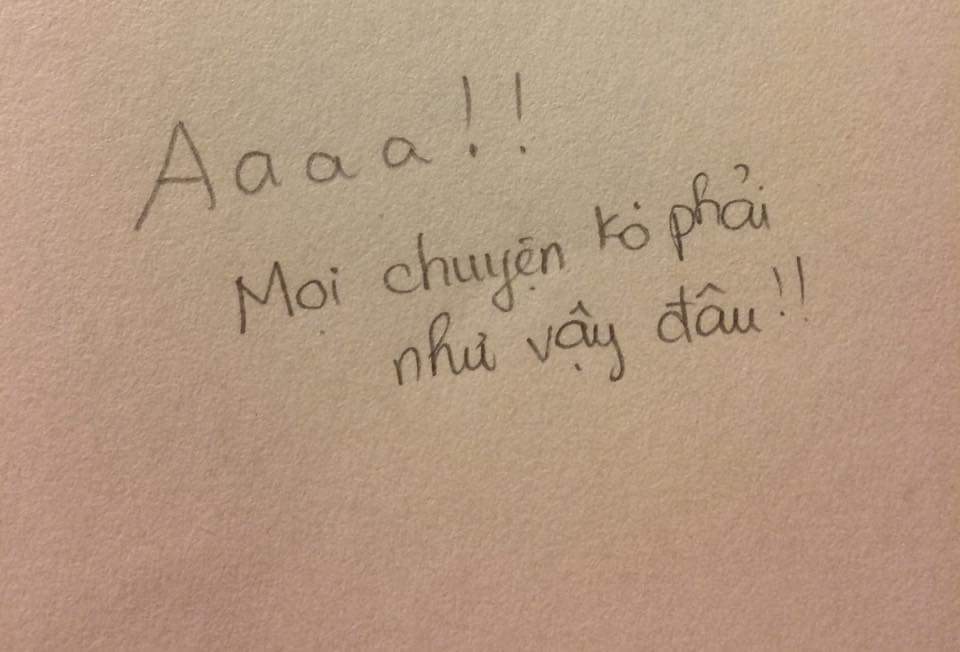 Aaaa!!
Mọi chuyện kỏ phải
như vậy đâu!!